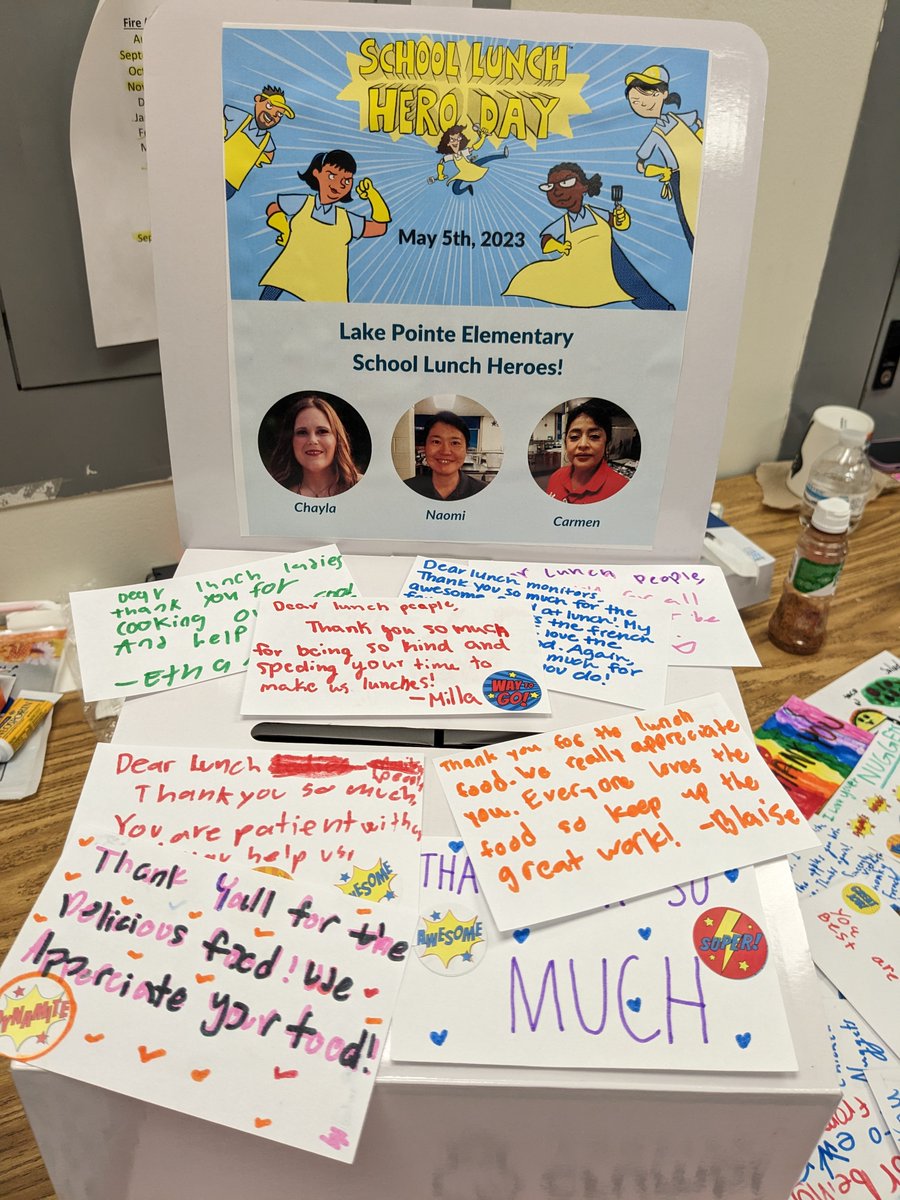 Fire
SCHOOL LUNCH
HERO DAY
May 5th, 2023
Lake Pointe Elementary
School Lunch Heroes!
Chayla
Naomi
Carmen
Dear lunch ladies
thank you for
cooking
And help
Dear lunch people,
Thank you so much
for being so kind and
speding your time to
make us lunches!
-Milla
WAY TO
GO!
Dear lunch monitors,
Thank you so much for the
awesome
at lunch! My
the french
love the
Again,
much for
you do!
Lunch People,
for all
be
Dear Lunch
Thank you so much,
You are patient with
help us!
AWESOME
Thank you for the lunch
food. We really appreciate
you. Everyone loves the
food so keep up the
great work! -Blaise
Thank Yall for the
Delicious food! We
Apperciate your food!
DYNAMITE
SO
MUCH
AWESOME
SUPER!
are
Nuggets
from